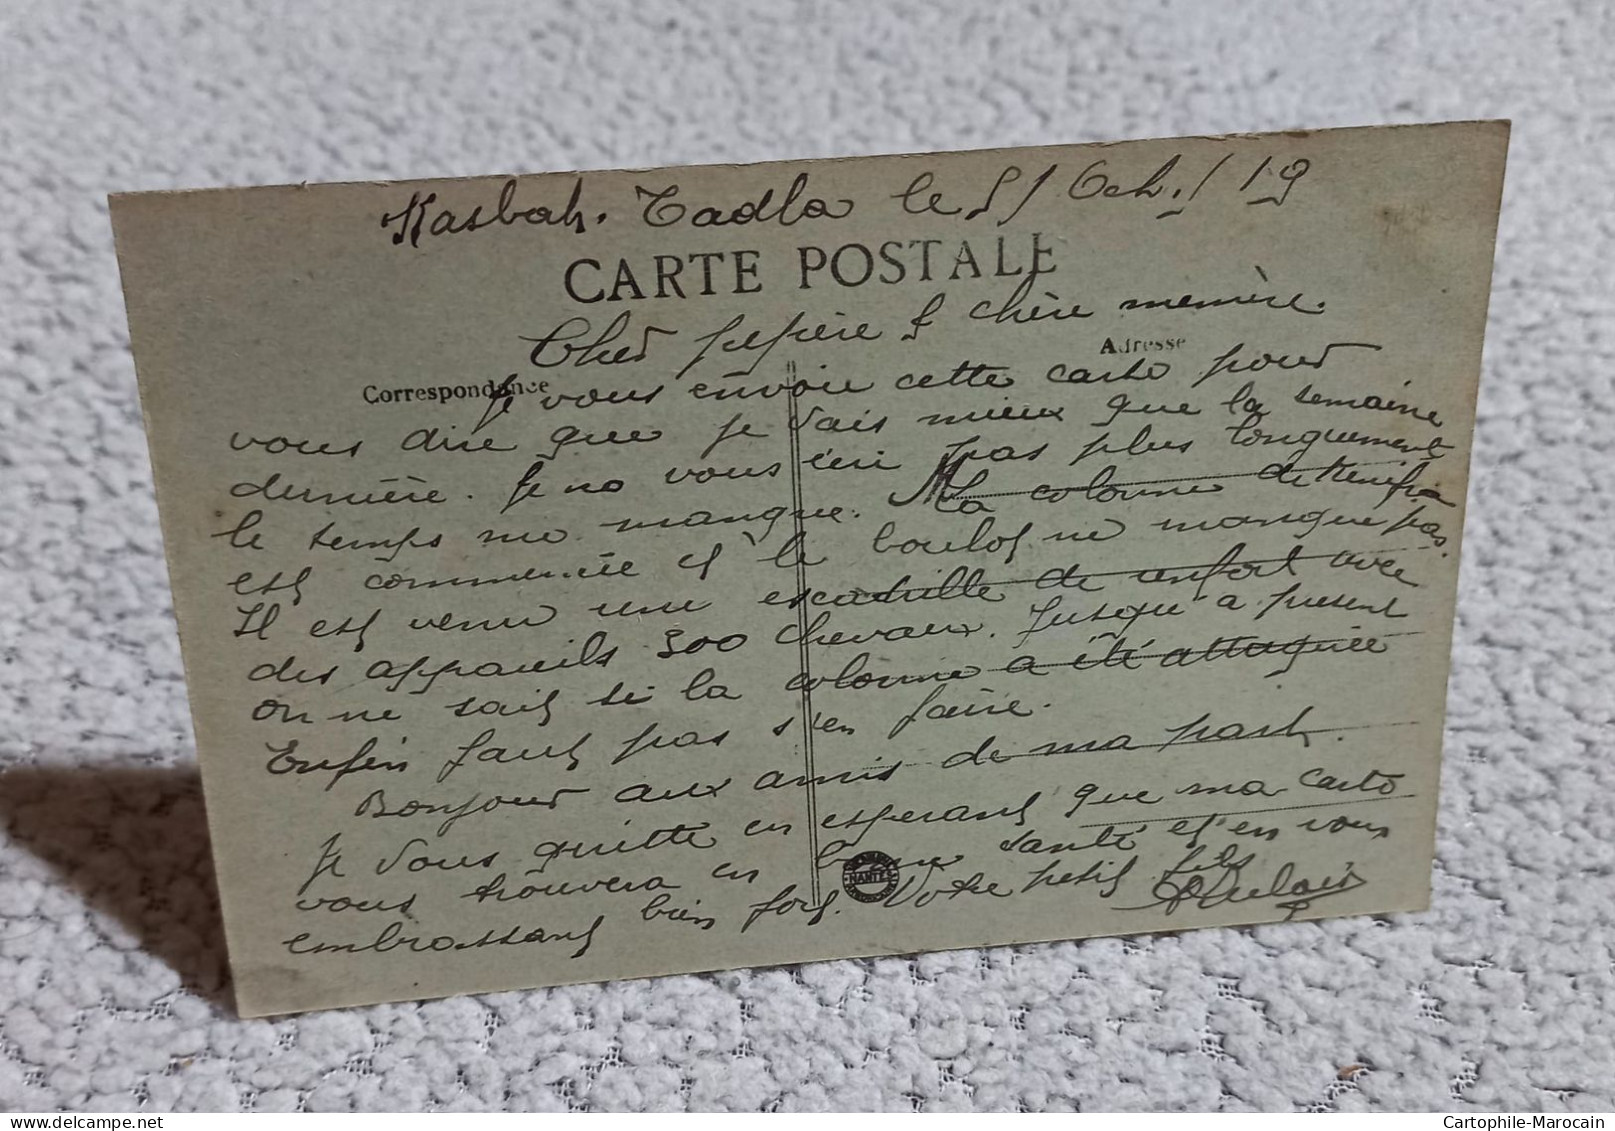 Kasbah. Tadla le 5/ Oct. / 19
CARTE POSTALE
Cher pepère & chère memère.
Correspondance
Adresse
Je vous envoie cette carte pour
vous dire que je vais mieux que la semaine
dernière. Je ne vous écri pas plus longuement
le temps me manque. La colonne de Kenifra
est commencée et le boulot ne manque pas.
Il est venu une escadrille de renfort avec
des appareils 300 chevaux. Jusqu'a present
on ne sait si la colonne a été attaquée
Enfin faut pas s'en faire.
Bonjour aux amis de ma part.
Je vous quitte en esperant que ma carte
vous trouvera en bonne santé et en vous
embrassant bien fort. Votre petit fils
NANTES
Cartophile-Marocain